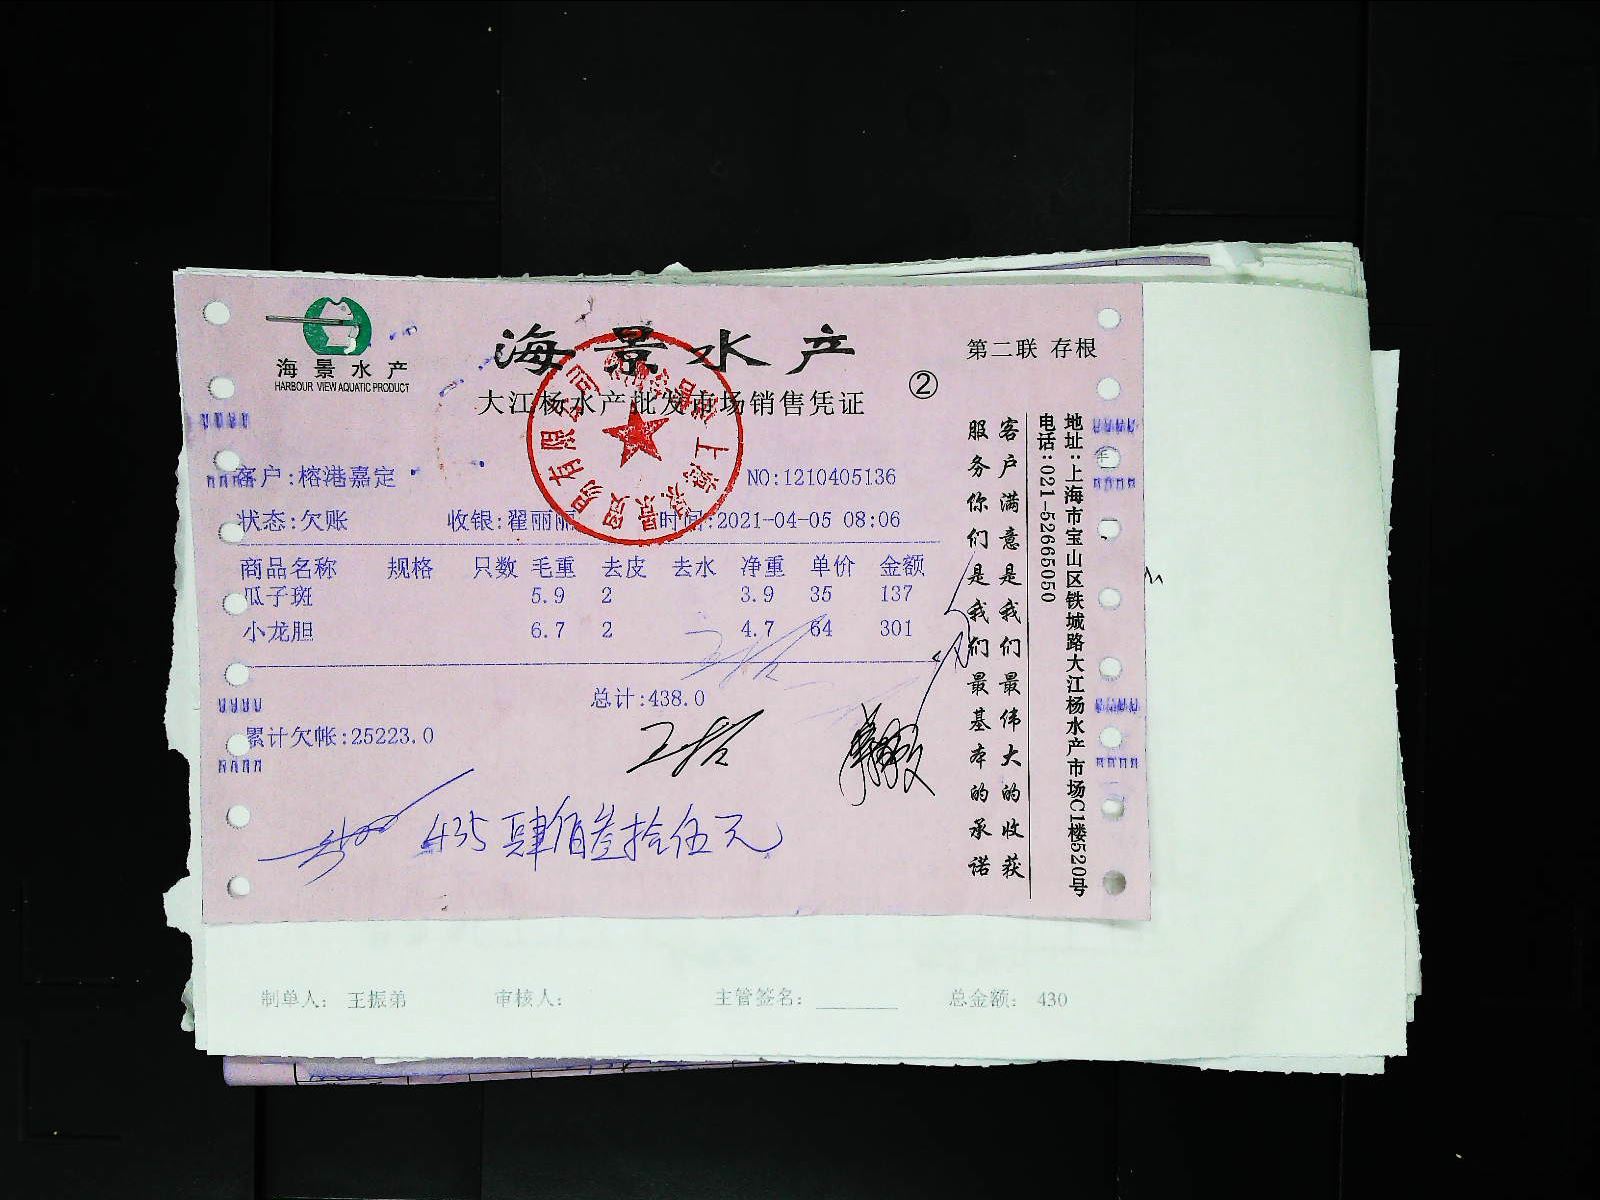 海景水产
HARBOUR VIEW AQUATIC PRODUCT
海景水产
大江杨水产批发市场销售凭证
②
第二联 存根
客户:榕港嘉定
NO:1210405136
状态:欠账 收银:翟丽丽 时间:2021-04-05 08:06
商品名称 规格 只数 毛重 去皮 去水 净重 单价 金额
瓜子斑 5.9 2 3.9 35 137
小龙胆 6.7 2 4.7 64 301
总计:438.0
累计欠帐:25223.0
435 肆佰叁拾伍元
客户满意是我们最伟大的收获
服务你们是我们最基本的承诺
地址:上海市宝山区铁城路大江杨水产市场C1楼520号
电话:021-52665050
制单人: 王振弟 审核人: 主管签名: 总金额: 430